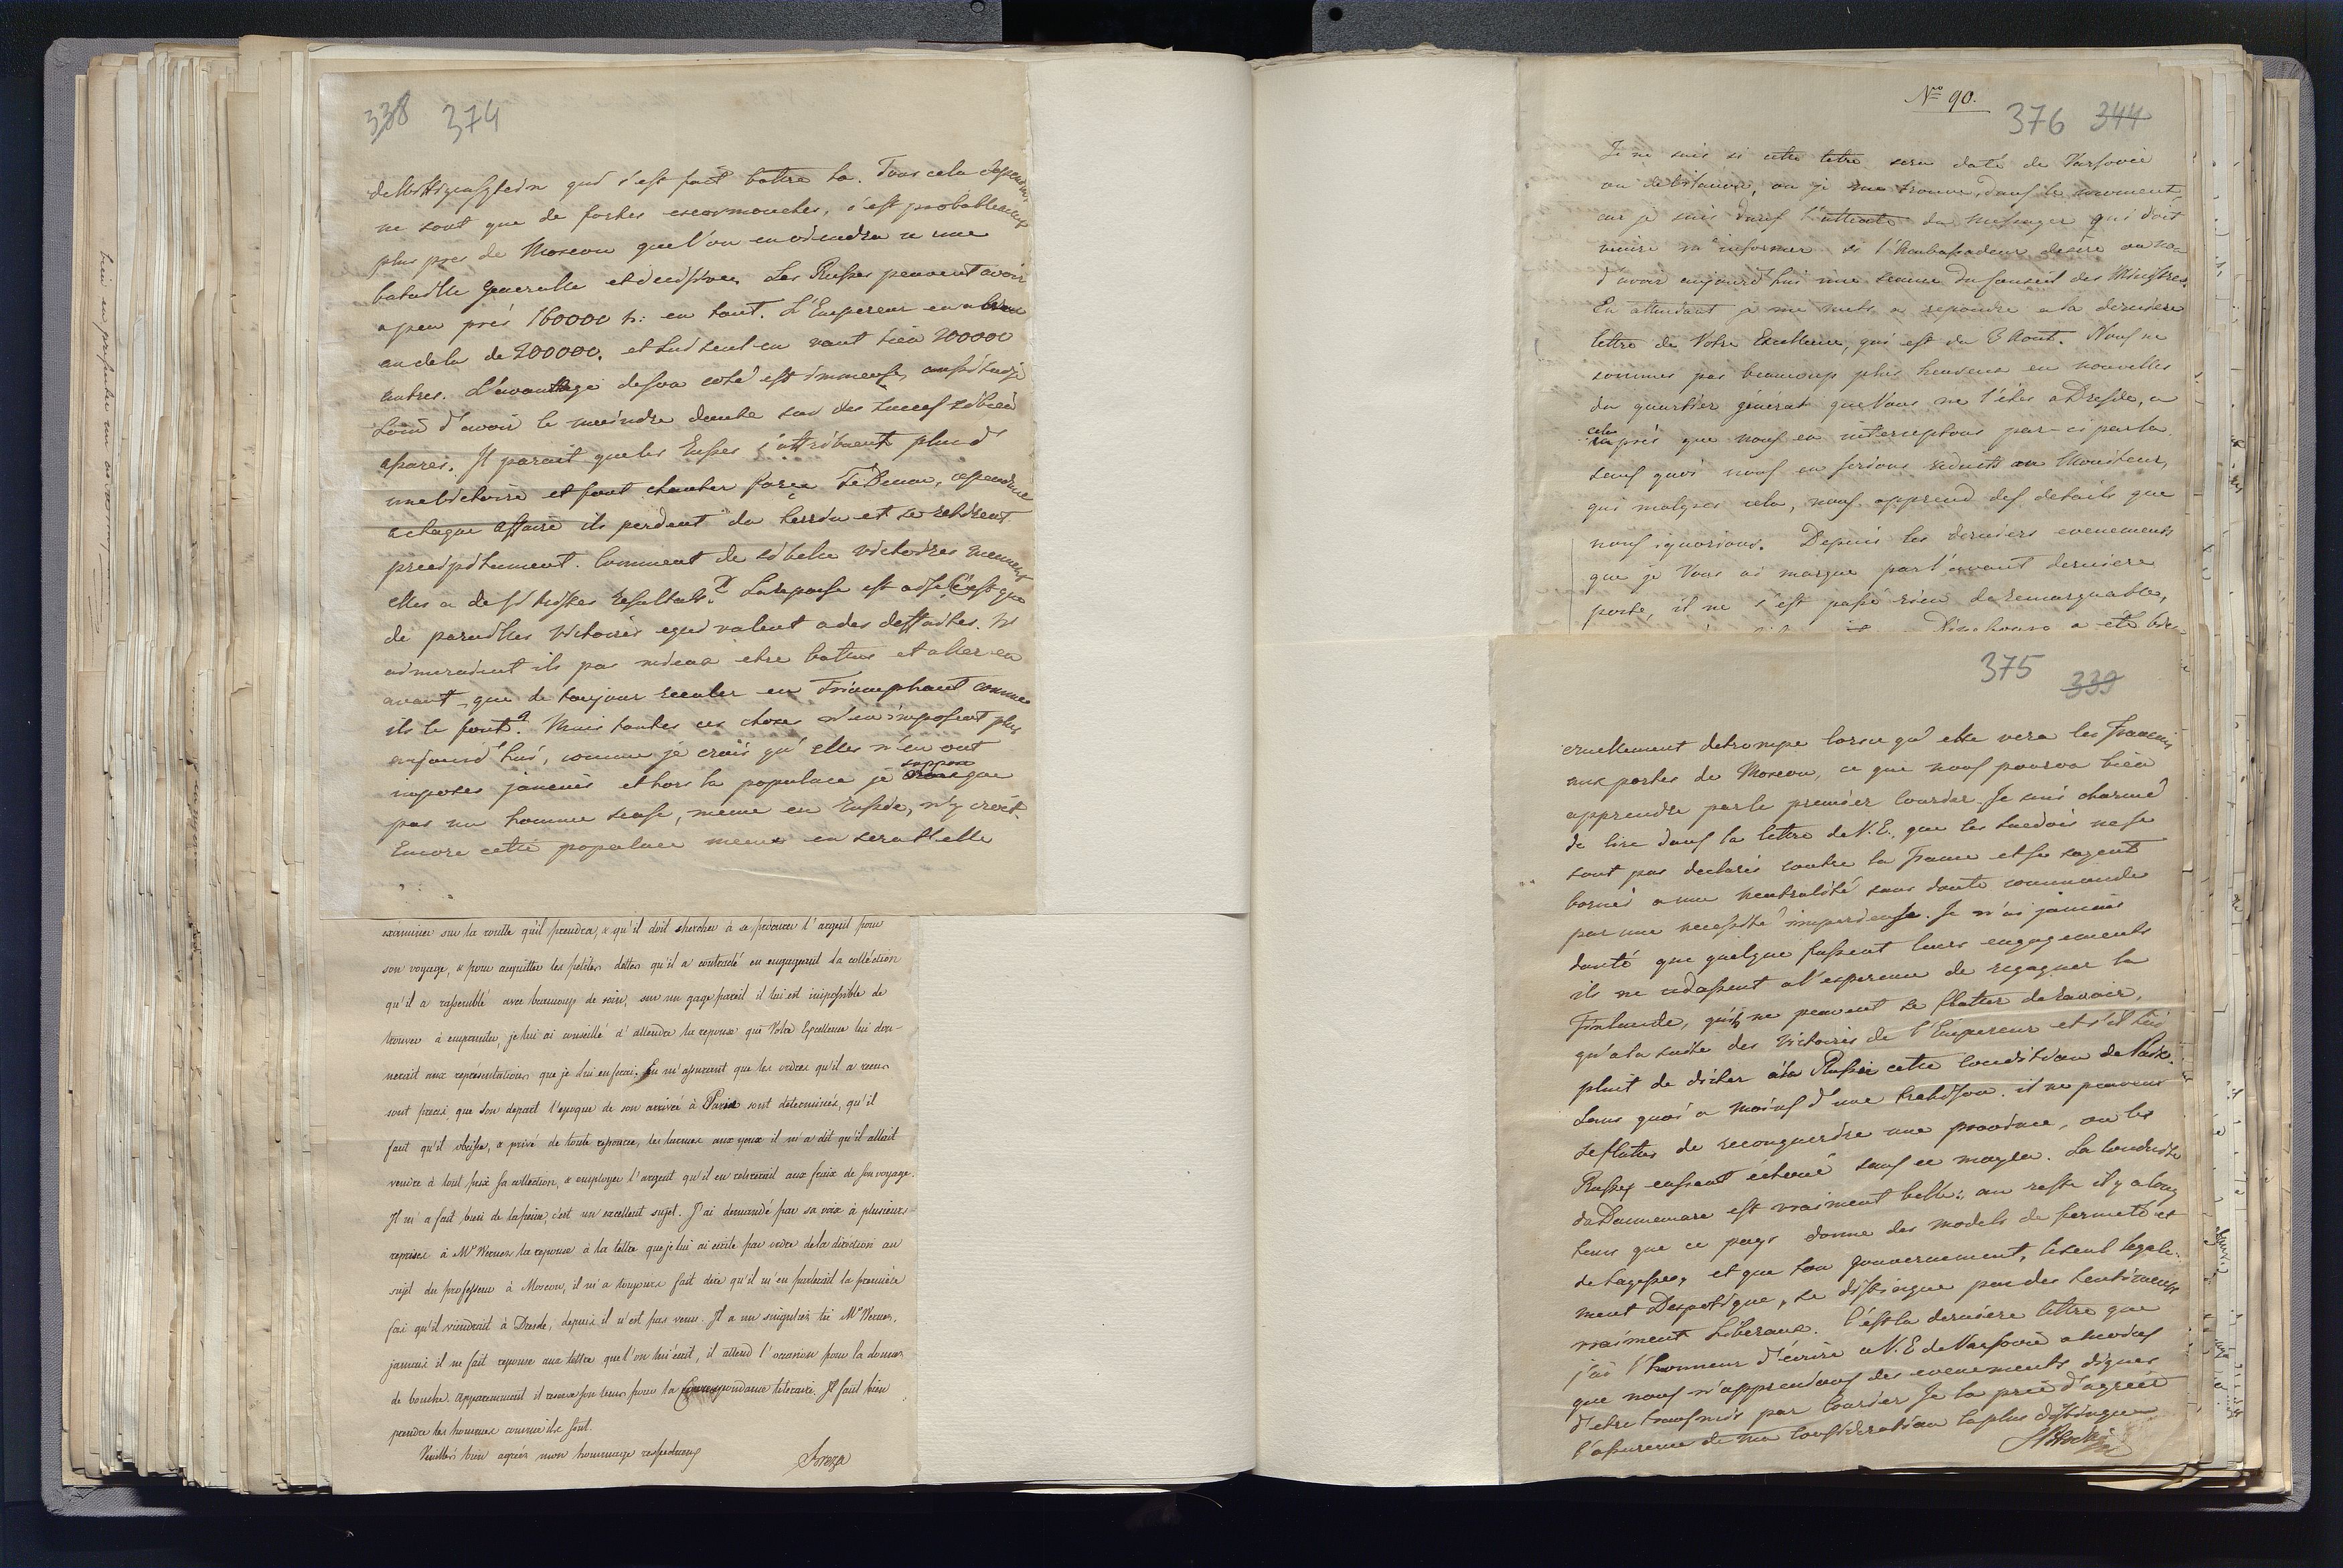 338 374
de Wittgensztein qui s'est fait battre la. Tous cela cependant
ne sont que de fortes escarmouches, c'est probablement
plus pres de Moscou que l'on en viendra a une
bataille generalle et decisive. Les Russes peuvent avoir
a peu près 160000 h: en tout. L'Empereur en a bien
au dela de 200000. et lui seul en vaut bien 200000
autres. L'avantage de son coté est immense, aussi suis-je
loin d'avoir le moindre doute sur des succes si bien
assurés. Il parait que les Russes s'attribuent plus d'
une Victoire et font chanter force Te Deum, cependant
a chaque affaire ils perdent du terrein et se retirent
precipitament. Comment de si belles victoires menent
elles a de si tristes resultats? La reponse est aisé C'est que
de pareilles Victoires equivalent a des deffaites. N'
aimeraient ils pas mieux etre battus et aller en
avant, que de toujour reculer en Triomphant comme
ils le font? Mais toutes ces choses n'en imposent plus
aujourd'hui, comme je crois qu'elles n'en ont
imposes jamais et hors la populace je suppose que
pas un homme sensé, meme en Russie, n'y croit.
Encore cette populace meme en serat elle
examiner sur la routte qu'il prendra, & qu'il doit chercher à se procurer l'argent pour
son voyage, & pour acquitter les petites dettes qu'il a contracté en engageant la colléction
qu'il a rassemblé avec beaucoup de soin, sur un gage pareil il lui est impossible de
trouver à emprunter, je lui ai conseillé d'attendre la reponse que Votre Excellence lui don-
nerait aux représentations que je lui en ferai. En m'assurant que les ordres qu'il a reçus
sont precis que son depart l'epoque de son arrivée à Paris sont determinés, qu'il
faut qu'il obeisse, & privé de toute resource, les larmes aux yeux il m'a dit qu'il allait
vendre à tout prix sa collection, & employer l'argent qu'il en retirerait aux fraix de son voyage.
Il m'a fait bien de la peine, c'est un excellent sujet. J'ai demandé par sa voix à plusieurs
reprises à Mr Werner la reponse à la lettre que je lui ai ecrite par ordre de la direction au
sujet du professeur à Moscou, il m'a toujours fait dire qu'il m'en parlerait la première
fois qu'il viendrait à Dresde, depuis il n'est pas venu. Il a un singulier tic Mr Werner,
jamais il ne fait reponse aux lettre que l'on lui écrit, il attend l'occasion pour la donner
de bouche. Apparemment il reserve son tems pour la Correspondance litéraire. Il faut bien
prendre les hommes comme ils sont.
Veuillés bien agréer mon hommage respectueux
Breza
Nro 90.
376 344
Je ne sais si cette lettre sera daté de Varsovie
ou de Vilanow, ou je me trouve dans le moment,
car je suis dans l'attente du messager qui doit
venire m'informer si l'Ambassadeur desire ou non
d'avoir aujourd'hui une seance du Conseil des Ministres.
En attendant je me mets a repondre a la derniere
lettre de Votre Excellence, qui est du 3 Aout. Nous ne
sommes pas beaucoup plus heureux en nouvelles
du quartier général que Vous ne l'êtes a Dresde, a
cela près que nous en interceptons par-ci par la
sans quoi nous en serions reduits au Moniteur,
qui malgres cela, nous apprend des details que
nous ignorions. Depuis les derniers evenements
que je Vous ai marque par l'avant derniere
poste, il ne s'est passé rien de remarquable,
Dinabourg a été
375 339
cruellement detrompe lorsqu'elle vera les Français
aux portes de Moscou, ce que nous pourra bien
apprendre par le premier Courier. Je suis charmé
de lire dans la lettre de V. E. que les Suedois ne se
sont pas declarés contre la France et se soyent
bornés a une neutralité sans doute commandé
par une necessité imperieuse. Je n'ai jamais
douté que quelque fussent leurs engagements
ils ne cedassent a l'esperence de regagner la
Finlande, qu'ils ne peuvent se flatter de ravoir,
qu'a la suite des Victoires de l'Empereur et s'il lui
plait de dicter à la Russie cette Condition de Paix.
Sans quoi a moins d'une trahison. il ne peuvent
se flatter de reconquerire une province, ou les
Russes eussent échoué sans ce moyen. La Conduite
du Dannemarc est vraiment belle: au reste il y a long
tems que ce pays donne des models de fermeté et
de sagesse, et que son gouvernement, le seul legale-
ment Despotique, se distingue par des sentiments
vraiment Liberaux. C'est la derniere lettre que
j'ai l'honneur d'écrire a V. E de Varsovie a moins
que nous n'apprendions des evenements dignes
d'etre transmis par Courier Je la prie d'agréer
l'assurance de ma Consideration la plus distingué